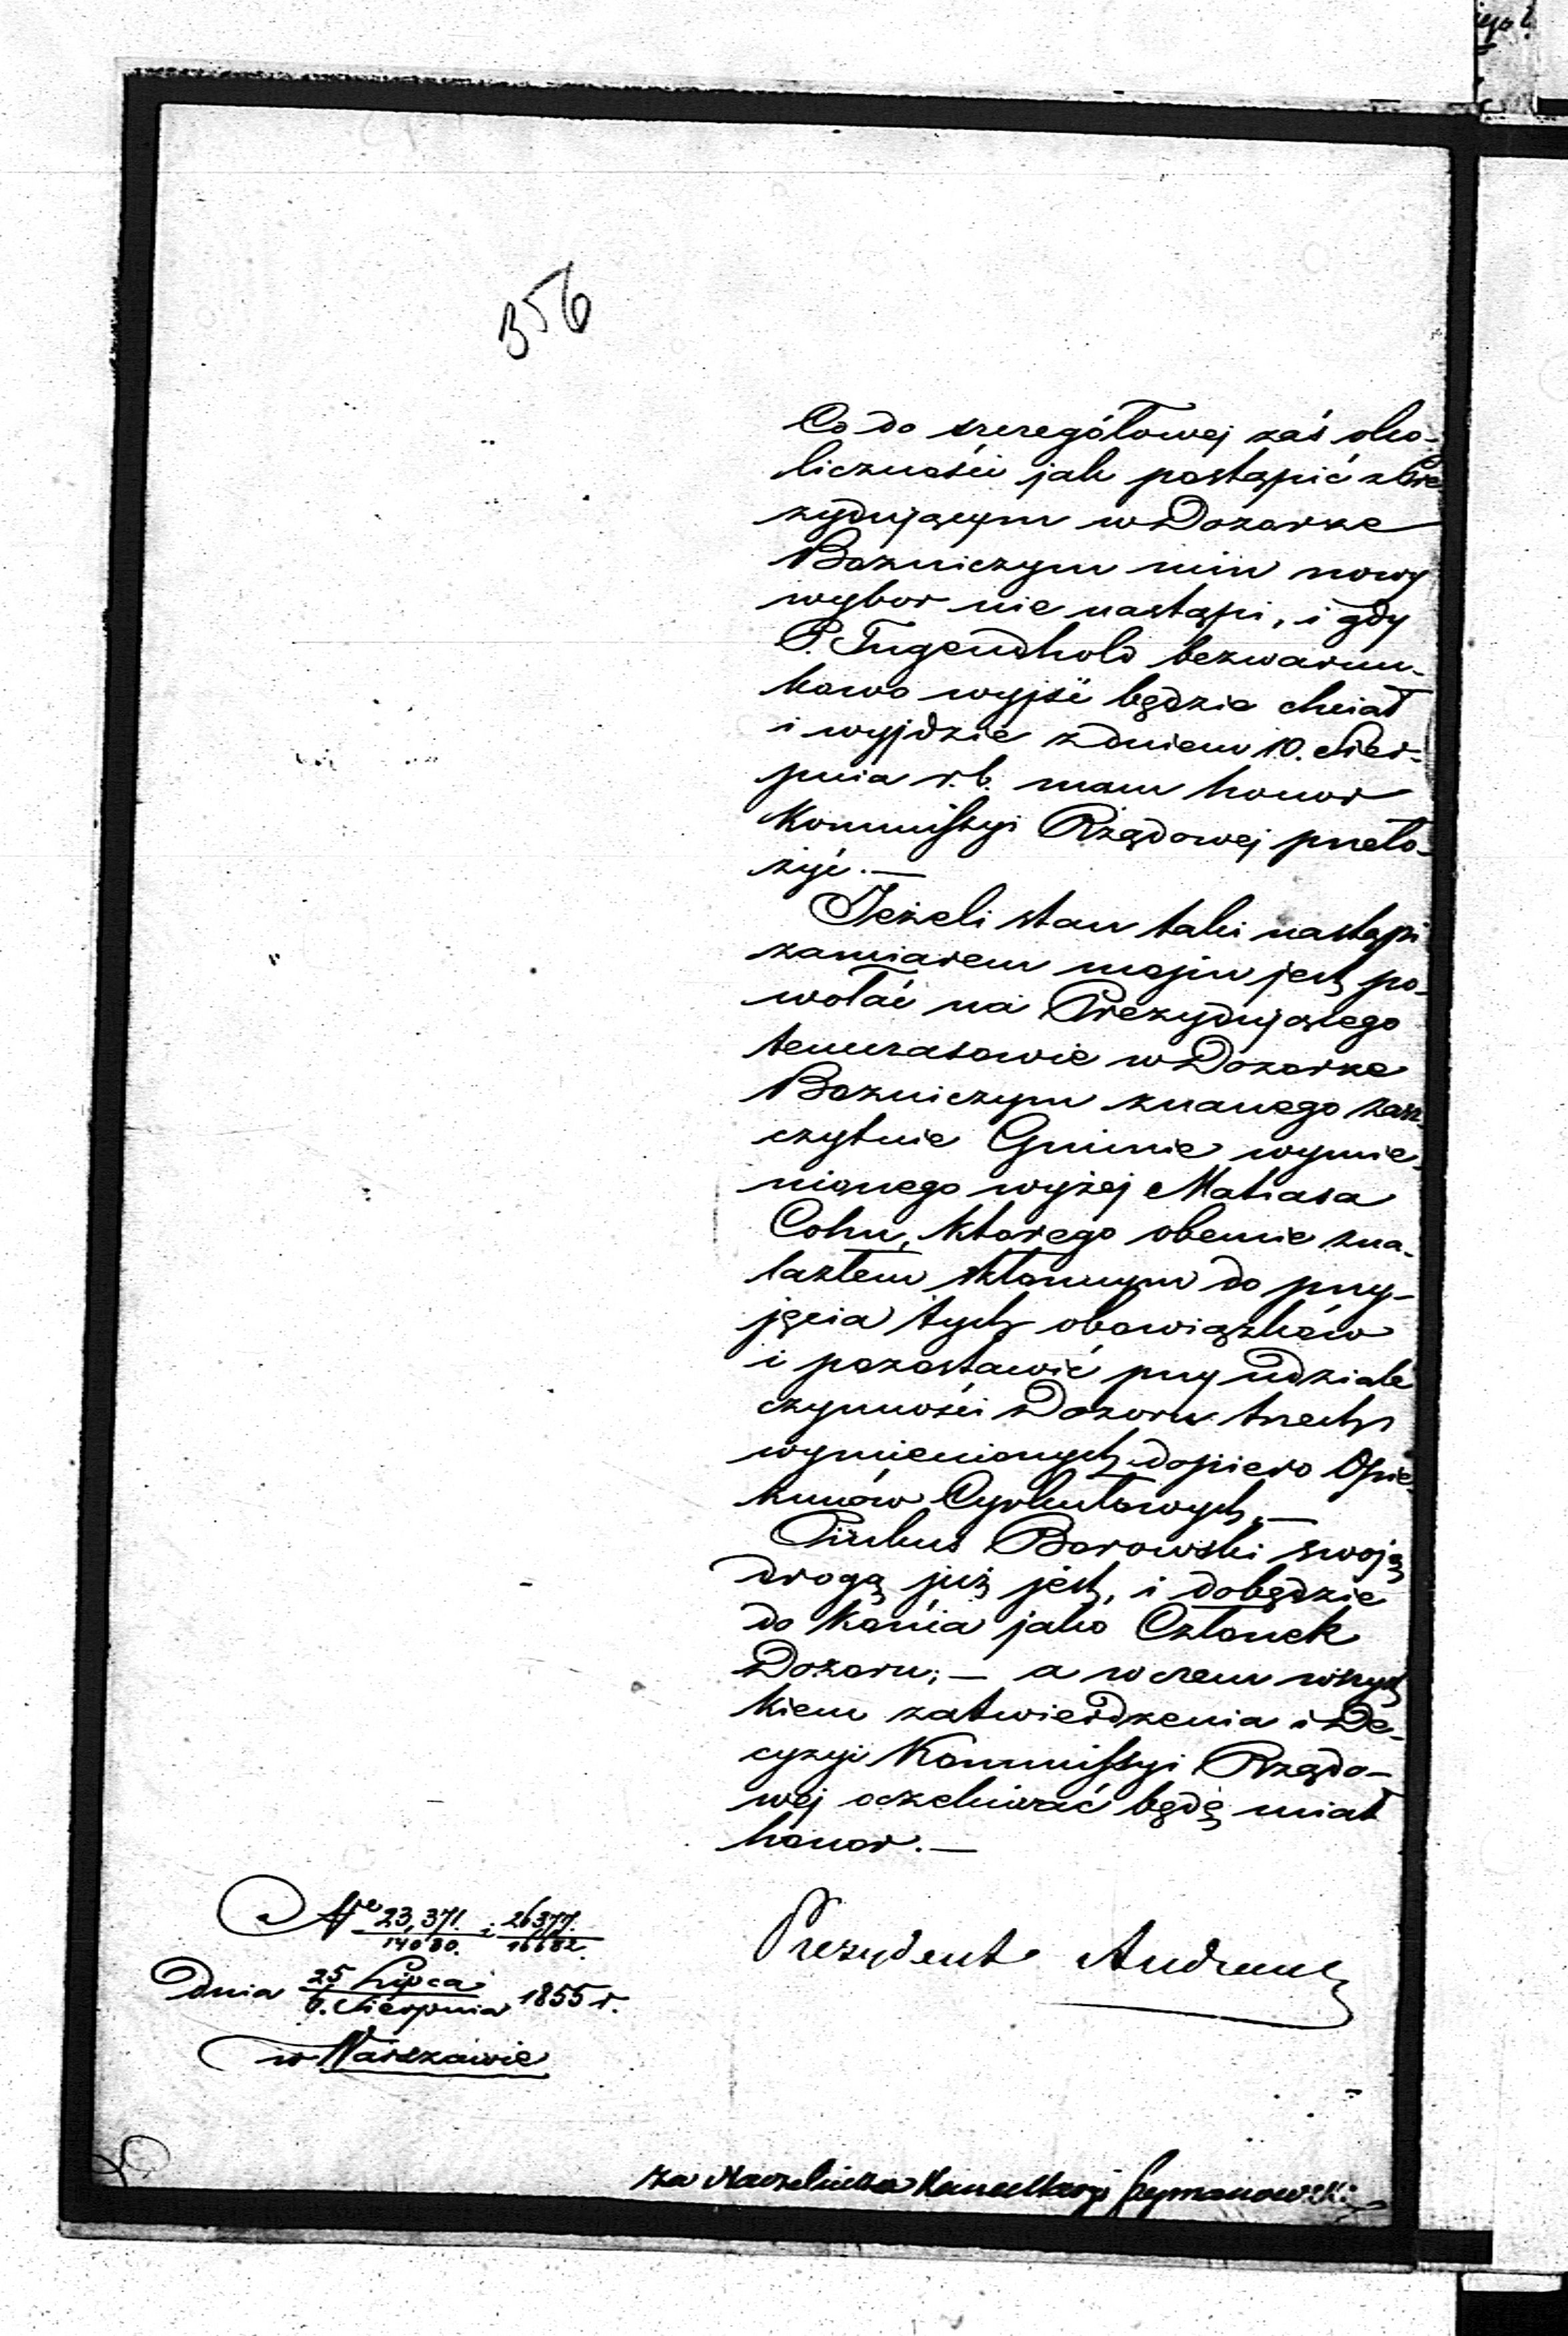 356
Co do szczegółowej zaś oko-
liczności jak postąpić z Pre-
zydującym w Dozorze
Bożniczym nim nowy
wybor nie nastąpi, i gdy
P. Tugendhold bezwarun-
kowo wyjść będzie chciał
i wyjdzie z dniem 10. Sier-
pnia r. b. mam honor
Kommissyi Rządowej przeło-
żyć. —
Jeżeli stan taki nastąpi
zamiarem mojim jest po-
wołać na Prezydującego
temczasowie w Dozorze
Bożniczym znanego zasz-
czytnie Gminie wymie-
nionego wyżej Matiasa
Cohn, ktorego obecnie zna-
lazłem skłonnym do przy-
jęcia tych obowiązków
i pozostawić przy udziale
czynności Dozoru trzech
wymienionych dopiero Opie-
kunów Cyrkułowych. —
Pinkus Borowski swoją
drogą już jest, i dobędzie
do końca jako Członek
Dozoru; — a w czem wszyst
kiem zatwierdzenia i De-
cyzyi Kommissyi Rządo-
wej oczekiwać będę miał
honor. —
Prezydent Andrault
Nre 23,371./14080. i 26377./16682.
Dnia 25 Lipca/6. Sierpnia 1855 r.
w Warszawie
za Naczelnika Kancellaryi Szymanowski